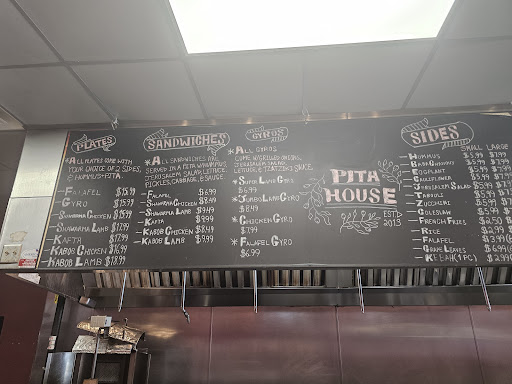 PLATES
*ALL PLATES COME WITH
YOUR CHOICE OF 2 SIDES,
HUMMUS + PITA.
- FALAFEL $15.99
- GYRO $15.99
- SHAWARMA CHICKEN $15.99
- SHAWARMA LAMB $17.99
- KAFTA $17.99
- KABOB CHICKEN $16.99
- KABOB LAMB $18.99
SANDWICHES
*ALL SANDWICHES ARE
SERVED IN A PITA W/HUMMUS,
JERUSALEM SALAD, LETTUCE
PICKLES, CABBAGE, & SAUCE
- FALAFEL $6.99
- SHAWARMA CHICKEN $8.99
- SHAWARMA LAMB $9.49
- KAFTA $9.99
- KABOB CHICKEN $8.99
- KABOB LAMB $9.99
GYROS
*ALL GYROS
COME W/GRILLED ONIONS,
JERUSALEM SALAD,
LETTUCE, & TZATZIKI SAUCE
* SUPER LAMB GYRO
$6.99
* JUMBO LAMB GYRO
$8.49
* CHICKEN GYRO
$7.99
* FALAFEL GYRO
$6.99
PITA
HOUSE
EST.
2013
SIDES
SMALL LARGE
- HUMMUS $5.99 $7.99
- BABA GHANOUSH $5.99 $7.99
- EGGPLANT $5.99
- CAULIFLOWER $5.99
- JERUSALEM SALAD $5.99
- TABOULI
- ZUCCHINI
- COLESLAW
- FRENCH FRIES
- RICE
- FALAFEL
- GRAPE LEAVES
- KEBAH (1 PC)